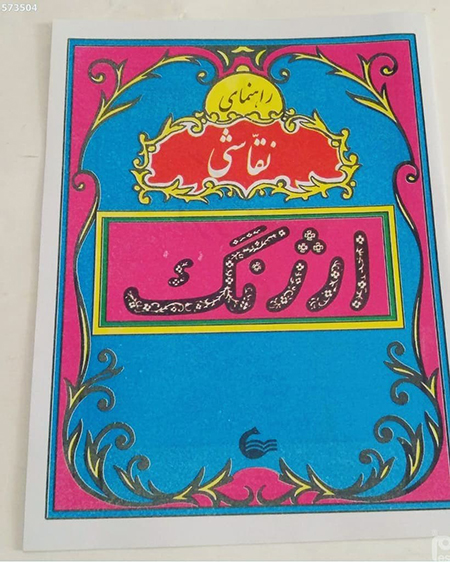 573504
راهنمای
نقّاشی
ارژنگ